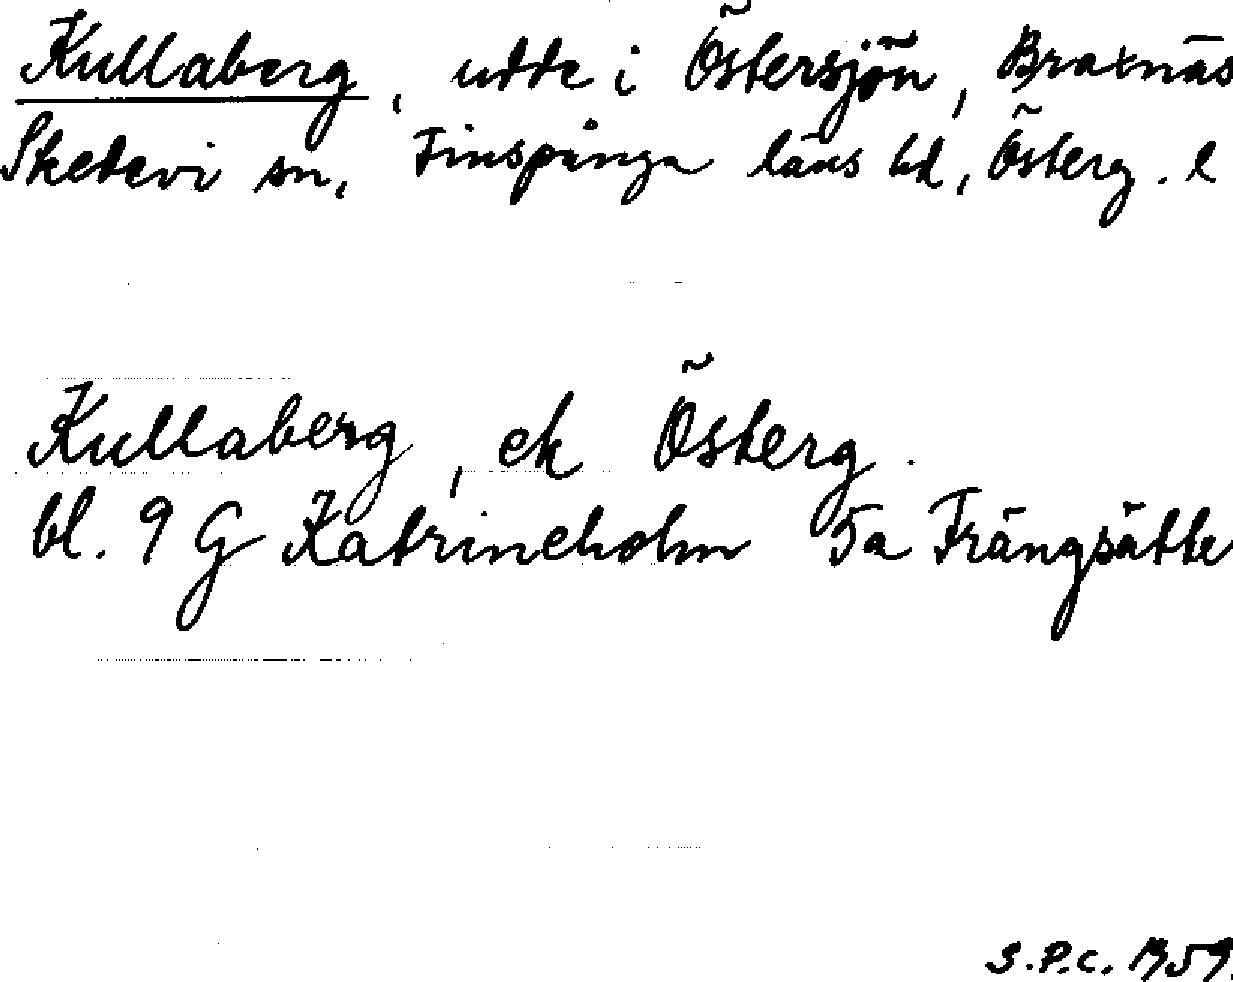 Kullaberg, udde i Östersjön, Braxnäs
Skedevi sn, Finspånga läns hd, Österg. l
Kullaberg, ek Österg.
bl. 9 G Katrineholm 5a Trängsätte
S.P.C. 1959.